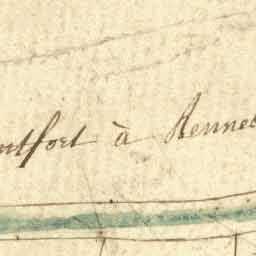 ntfort à Rennes